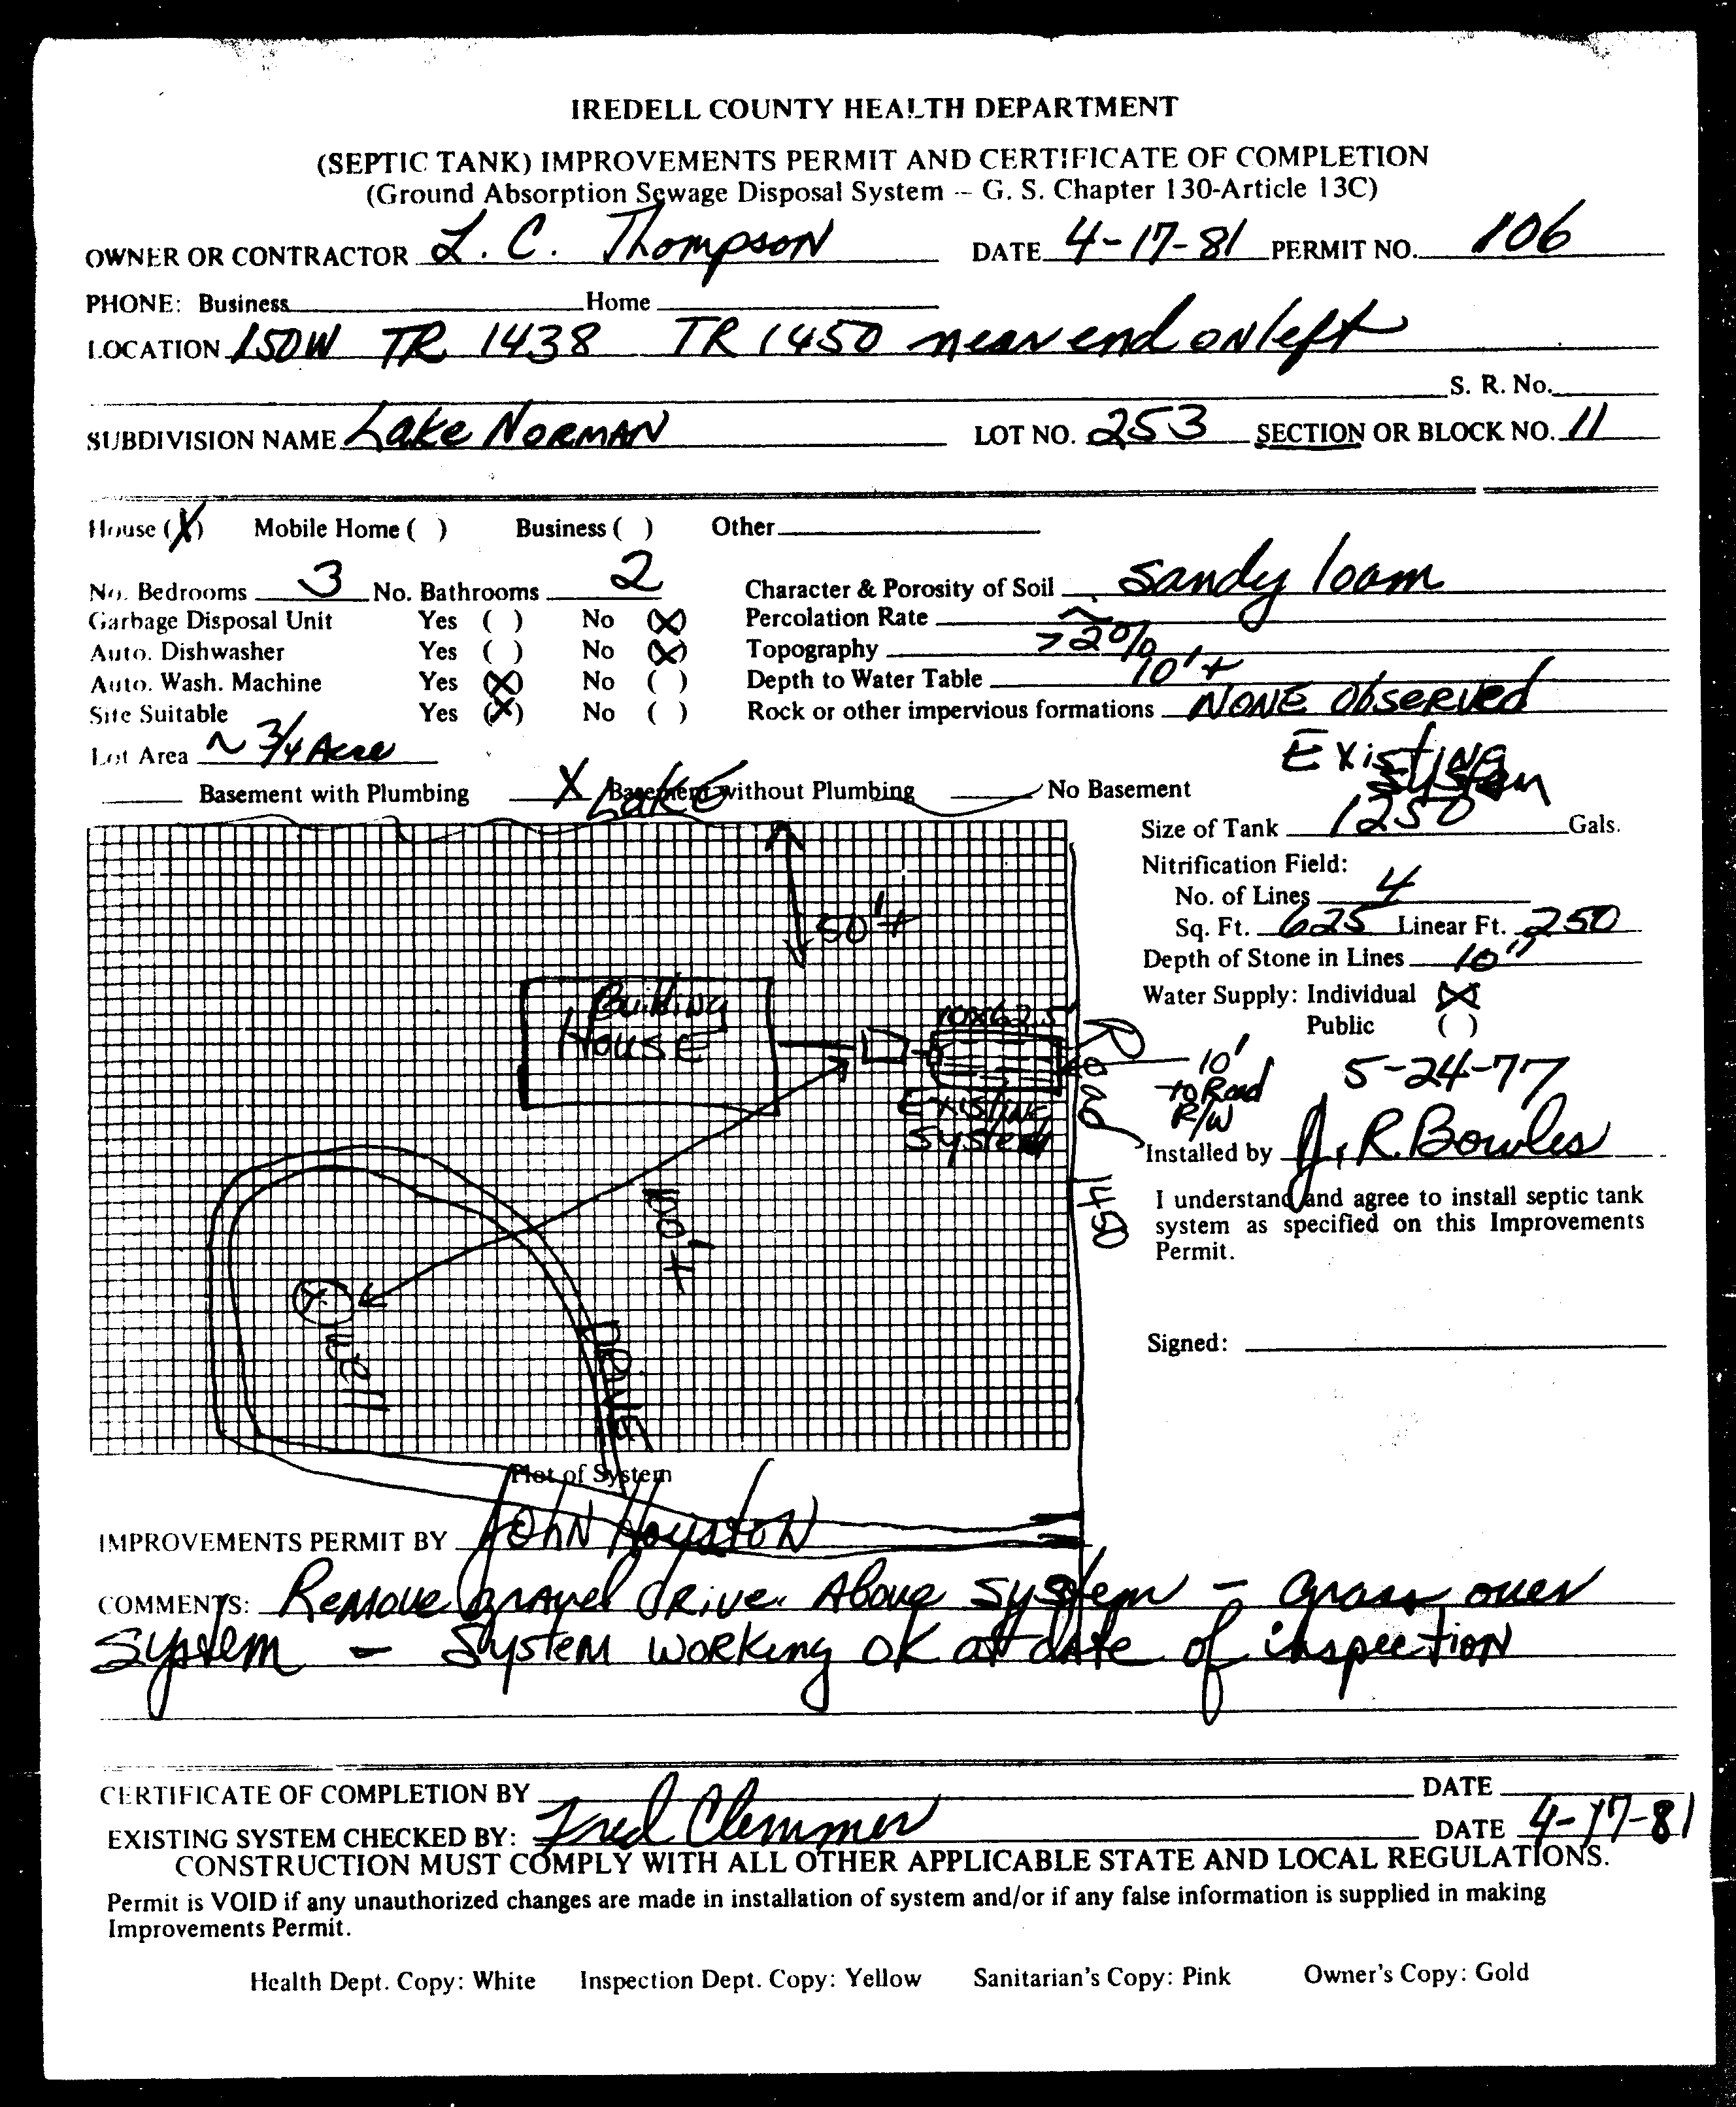 IREDELL COUNTY HEALTH DEPARTMENT
(SEPTIC TANK) IMPROVEMENTS PERMIT AND CERTIFICATE OF COMPLETION
(Ground Absorption Sewage Disposal System -- G. S. Chapter 130-Article 13C)
OWNER OR CONTRACTOR L. C. Thompson DATE 4-17-81 PERMIT NO. 106
PHONE: Business Home
LOCATION 150W TR 1438 TR 1450 near end on left
S. R. No.
SUBDIVISION NAME Lake Norman LOT NO. 253 SECTION OR BLOCK NO. 11
House (X) Mobile Home ( ) Business ( ) Other
No. Bedrooms 3 No. Bathrooms 2 Character & Porosity of Soil Sandy loam
Garbage Disposal Unit Yes ( ) No (X) Percolation Rate ~
Auto. Dishwasher Yes ( ) No (X) Topography >2%
Auto. Wash. Machine Yes (X) No ( ) Depth to Water Table 10'+
Site Suitable Yes (X) No ( ) Rock or other impervious formations NONE Observed
Lot Area ~ 3/4 Acre
Existing System
Basement with Plumbing X Basement without Plumbing No Basement
Lake
Size of Tank 1250 Gals.
Nitrification Field:
No. of Lines 4
Sq. Ft. 625 Linear Ft. 250
Depth of Stone in Lines 10"
Water Supply: Individual (X)
Public ( )
50'+
Building
House
10x62.5'
Existing
System
Road 1450
10'
to Road
R/W
5-24-77
Installed by J. R. Bowles
I understand and agree to install septic tank
system as specified on this Improvements
Permit.
100'+
Well
DRIVE
Signed:
Plot of System
IMPROVEMENTS PERMIT BY John Houston
COMMENTS: Remove gravel drive Above system - grass over
system - System working OK at date of inspection
CERTIFICATE OF COMPLETION BY DATE
EXISTING SYSTEM CHECKED BY: Fred Clemmer DATE 4-17-81
CONSTRUCTION MUST COMPLY WITH ALL OTHER APPLICABLE STATE AND LOCAL REGULATIONS.
Permit is VOID if any unauthorized changes are made in installation of system and/or if any false information is supplied in making
Improvements Permit.
Health Dept. Copy: White Inspection Dept. Copy: Yellow Sanitarian's Copy: Pink Owner's Copy: Gold